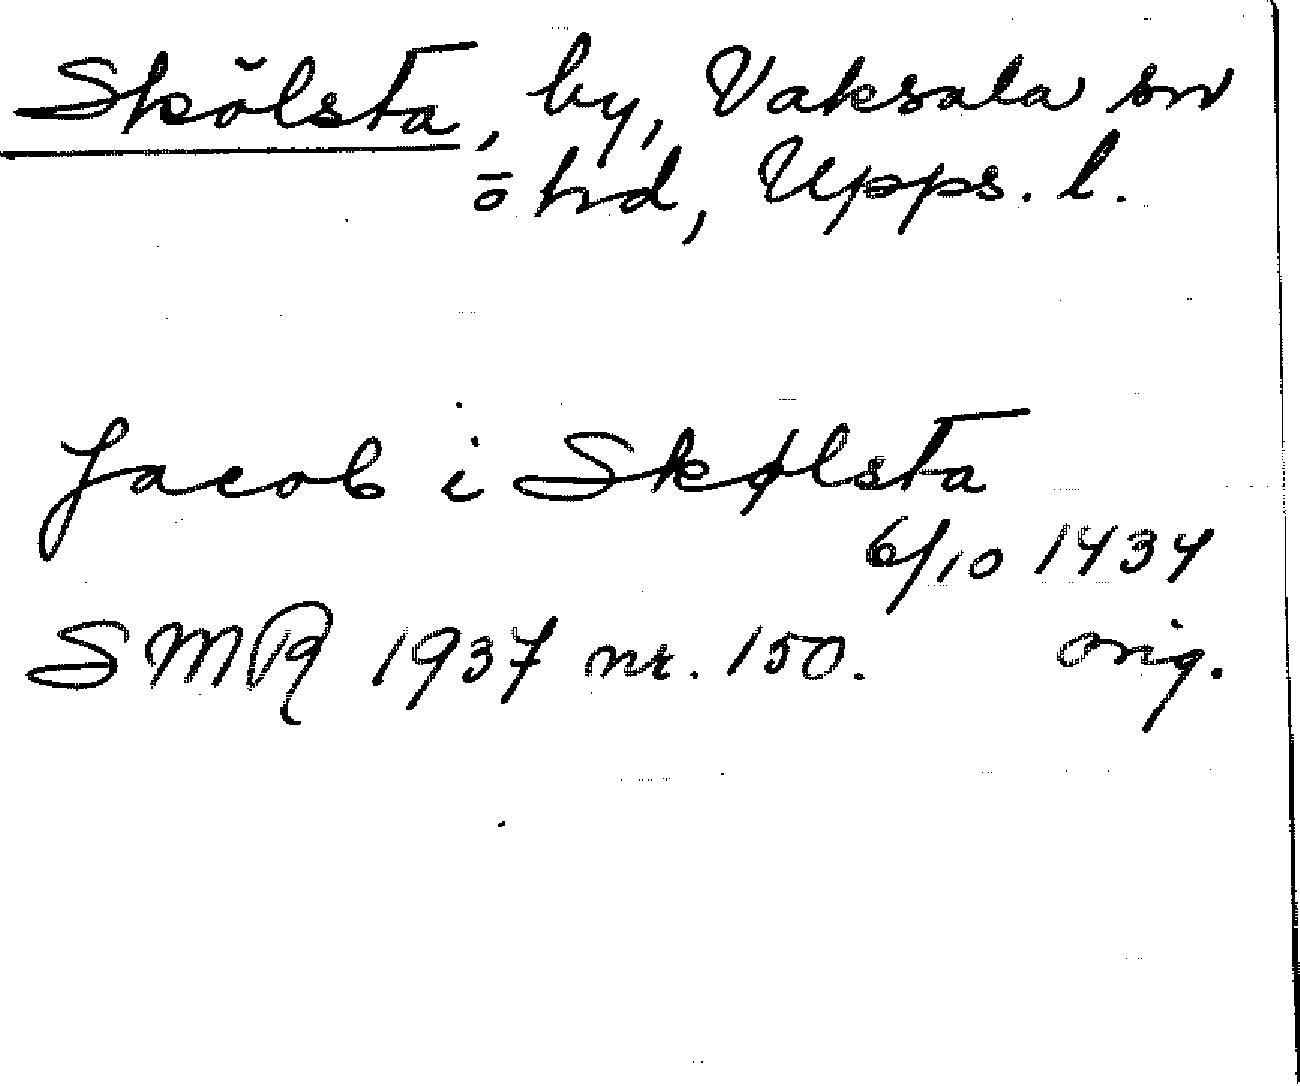 Skölsta, by, Vaksala sn
o hd, Upps. l.
Jacob i Skølsta
6/10 1434
SMR 1937 nr. 150. orig.